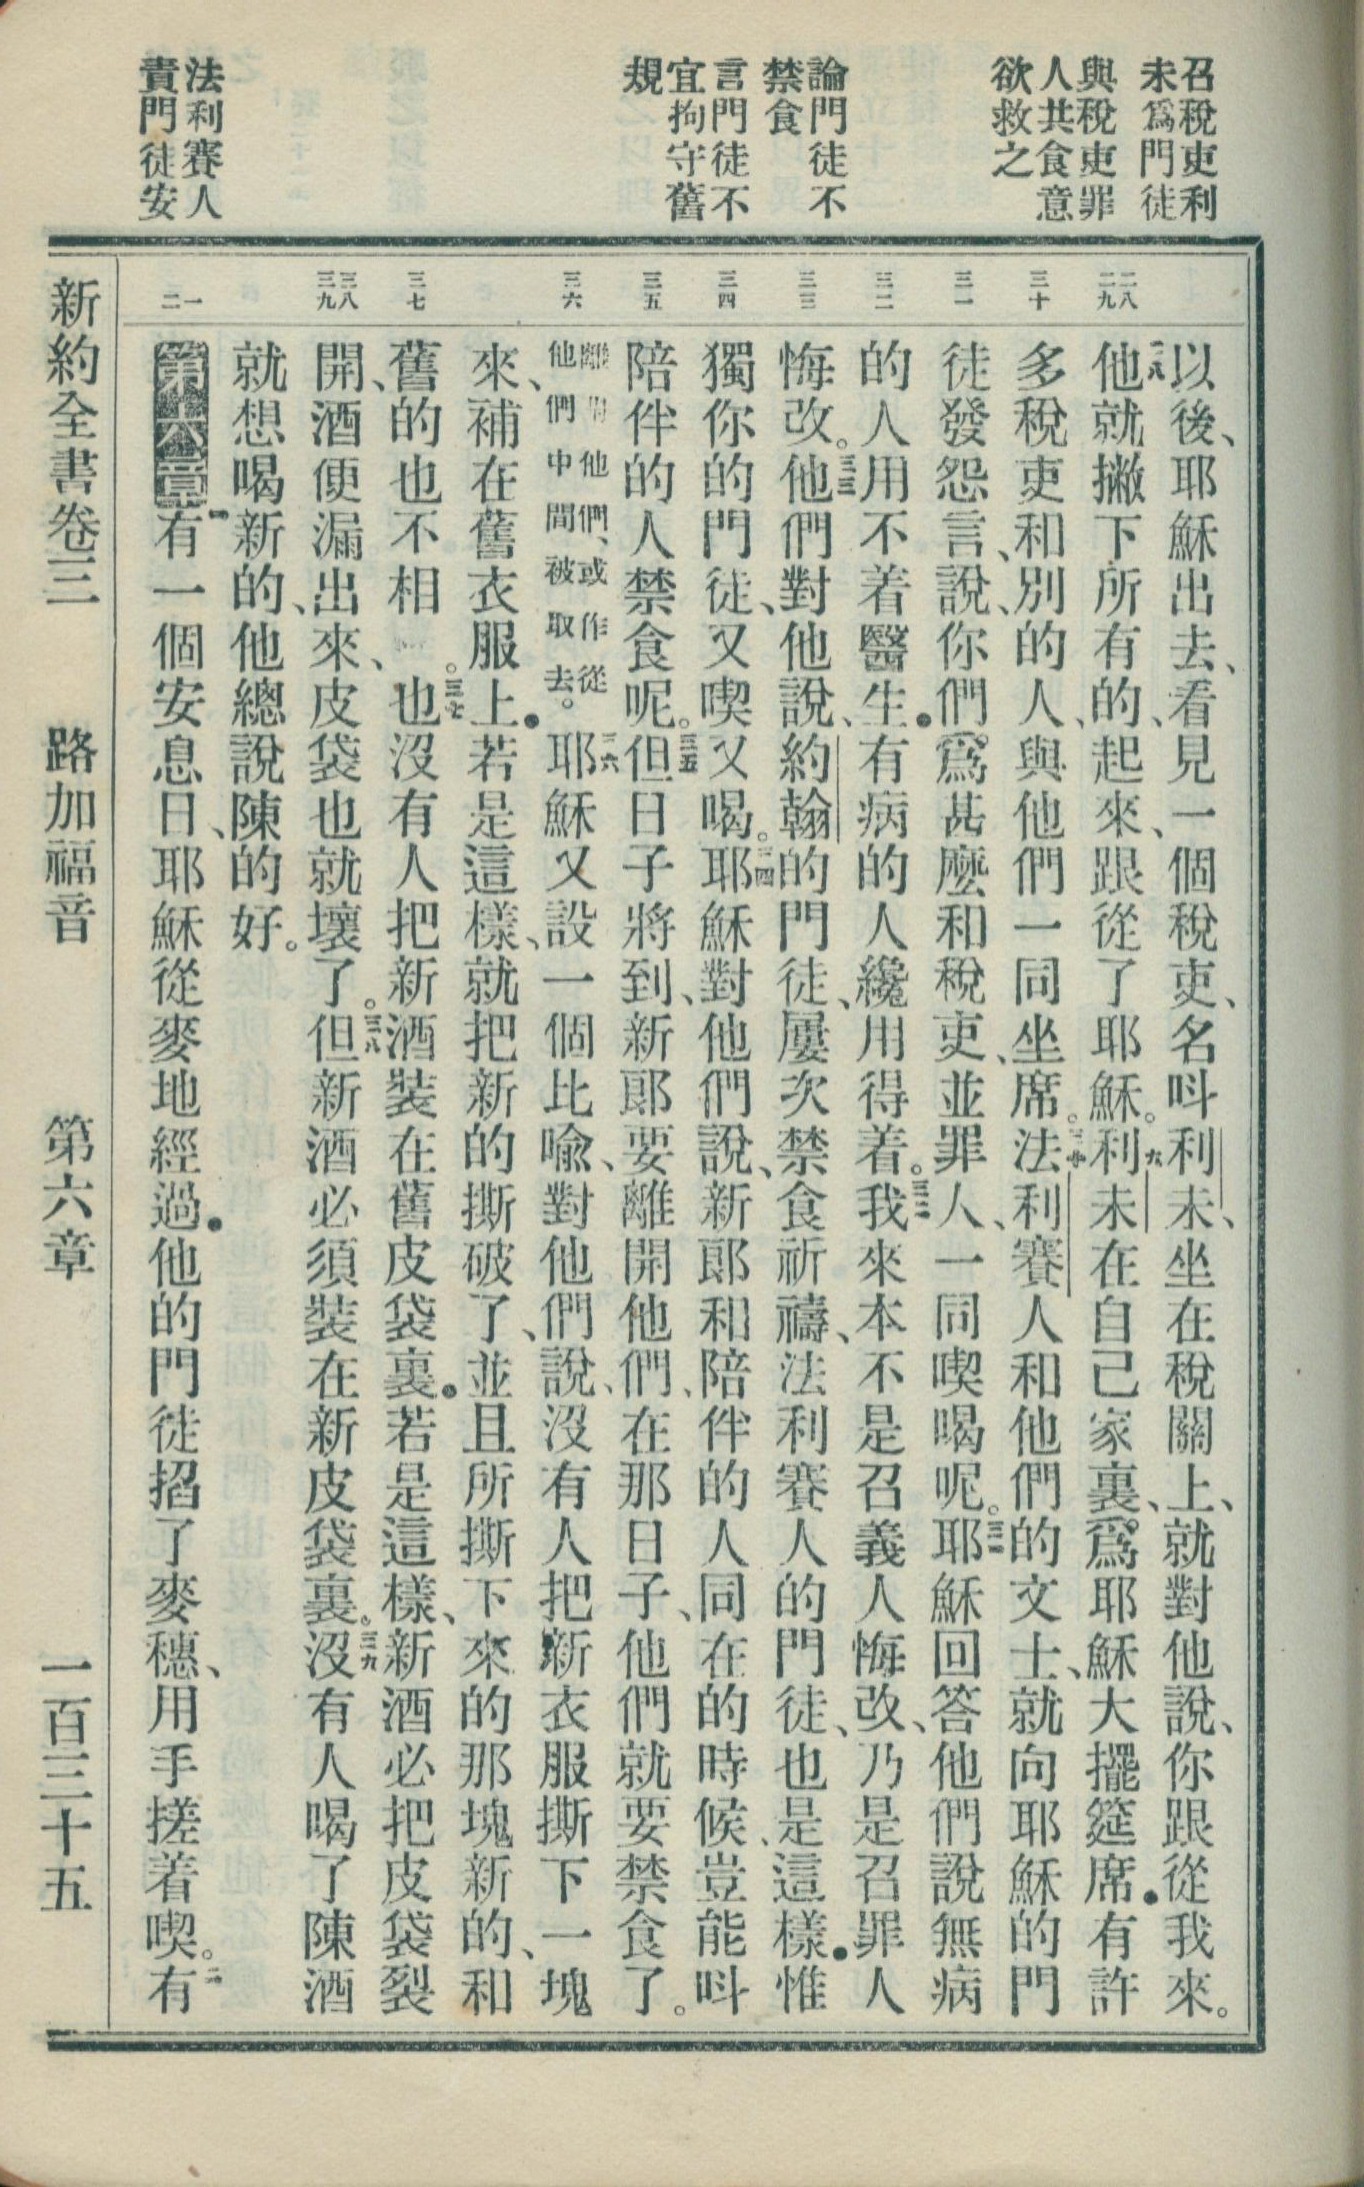 召稅吏利
未爲門徒
與稅吏罪
人共食意
欲救之
論門徒不
禁食
言門徒不
宜拘守舊
規
法利賽人
責門徒安
二八
二九
三十
三一
三二
三三
三四
三五
三六
三七
三八
三九
一
二
以後、耶穌出去、看見一個稅吏、名呌利未、坐在稅關上、就對他說、你跟從我來。
二八他就撇下所有的、起來、跟從了耶穌。二九利未在自己家裏、爲耶穌大擺筵席．有許
多稅吏和別的人、與他們一同坐席。三十法利賽人和他們的文士、就向耶穌的門
徒發怨言、說、你們爲甚麼和稅吏、並罪人、一同喫喝呢。三一耶穌回答他們說無病
的人用不着醫生．有病的人纔用得着。三二我來本不是召義人悔改、乃是召罪人
悔改。三三他們對他說、約翰的門徒、屢次禁食祈禱、法利賽人的門徒、也是這樣．惟
獨你的門徒、又喫又喝。三四耶穌對他們說、新郞和陪伴的人同在的時候、豈能呌
陪伴的人禁食呢。三五但日子將到、新郞要離開他們、在那日子、他們就要禁食了。
離開他們、或作從
他們中間被取去。
三六耶穌又設一個比喩、對他們說、沒有人把新衣服撕下一塊
來、補在舊衣服上．若是這樣、就把新的撕破了、並且所撕下來的那塊新的、和
舊的也不相 。三七也沒有人把新酒裝在舊皮袋裏．若是這樣、新酒必把皮袋裂
開、酒便漏出來、皮袋也就壞了。三八但新酒必須裝在新皮袋裏。三九沒有人喝了陳酒
就想喝新的、他總說陳的好。
第六章 一有一個安息日、耶穌從麥地經過．他的門徒掐了麥穗、用手搓着喫。二有
新約全書卷三 路加福音 第六章 一百三十五